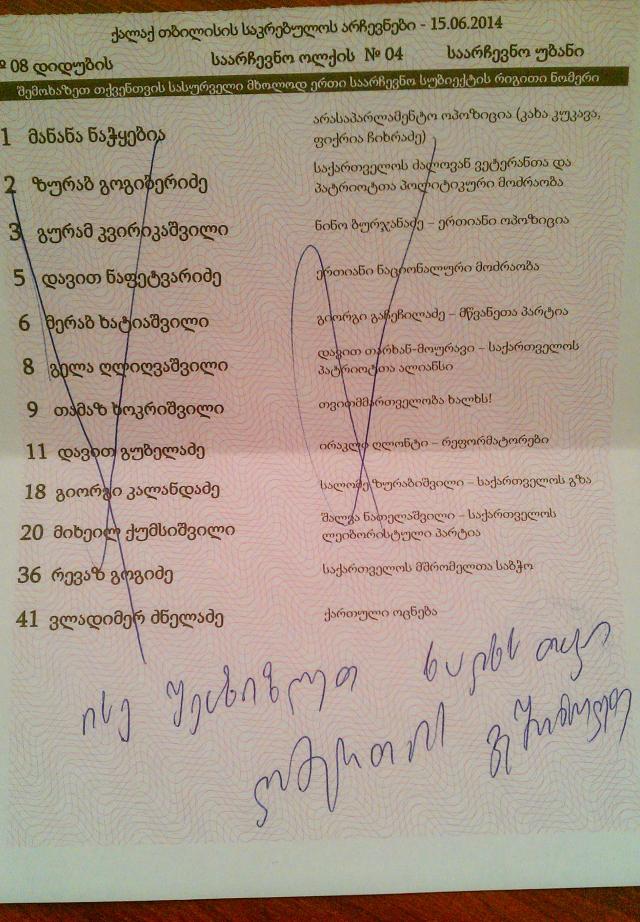 ქალაქ თბილისის საკრებულოს არჩევნები - 15.06.2014
№ 08 დიდუბის საარჩევნო ოლქის № 04 საარჩევნო უბანი
შემოხაზეთ თქვენთვის სასურველი მხოლოდ ერთი საარჩევნო სუბიექტის რიგითი ნომერი
1 მანანა ნაჭყებია არასაპარლამენტო ოპოზიცია (კახა კუკავა, ფიქრია ჩიხრაძე)
2 ზურაბ გოგიბერიძე საქართველოს ძალოვან ვეტერანთა და პატრიოტთა პოლიტიკური მოძრაობა
3 გურამ კვირიკაშვილი ნინო ბურჯანაძე – ერთიანი ოპოზიცია
5 დავით ნაფეტვარიძე ერთიანი ნაციონალური მოძრაობა
6 მერაბ ხატიაშვილი გიორგი გაჩეჩილაძე – მწვანეთა პარტია
8 გელა ღლიღვაშვილი დავით თარხან-მოურავი – საქართველოს პატრიოტთა ალიანსი
9 თამაზ ხოკრიშვილი თვითმმართველობა ხალხს!
11 დავით გუბელაძე ირაკლი ღლონტი – რეფორმატორები
18 გიორგი კალანდაძე სალომე ზურაბიშვილი – საქართველოს გზა
20 მიხეილ ქუმსიშვილი შალვა ნათელაშვილი – საქართველოს ლეიბორისტული პარტია
36 რევაზ გოგიძე საქართველოს მშრომელთა საბჭო
41 ვლადიმერ ძნელაძე ქართული ოცნება
ისე